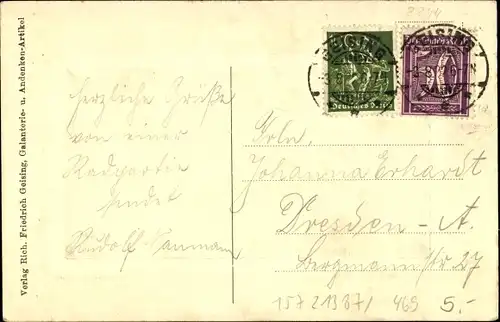 Verlag Rich. Friedrich Geising, Galanterie- u. Andenken-Artikel
Herzliche Grüße
von einer
Radpartie
sendet
Rudolf
GEISING
Deutsches Reich
GEISING
Frln.
Johanna Erhardt
Dresden-A.
Bergmannstr 27
157 21387/ 469
5.-